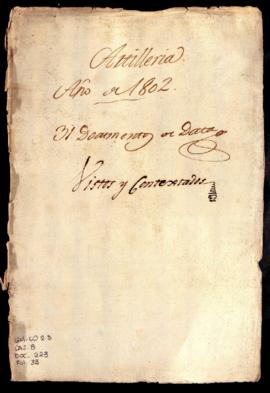 Artilleria
Año de 1802.
31 Documentos de Data
Vistos y Contextados
CAJ. 8
DOC. 223